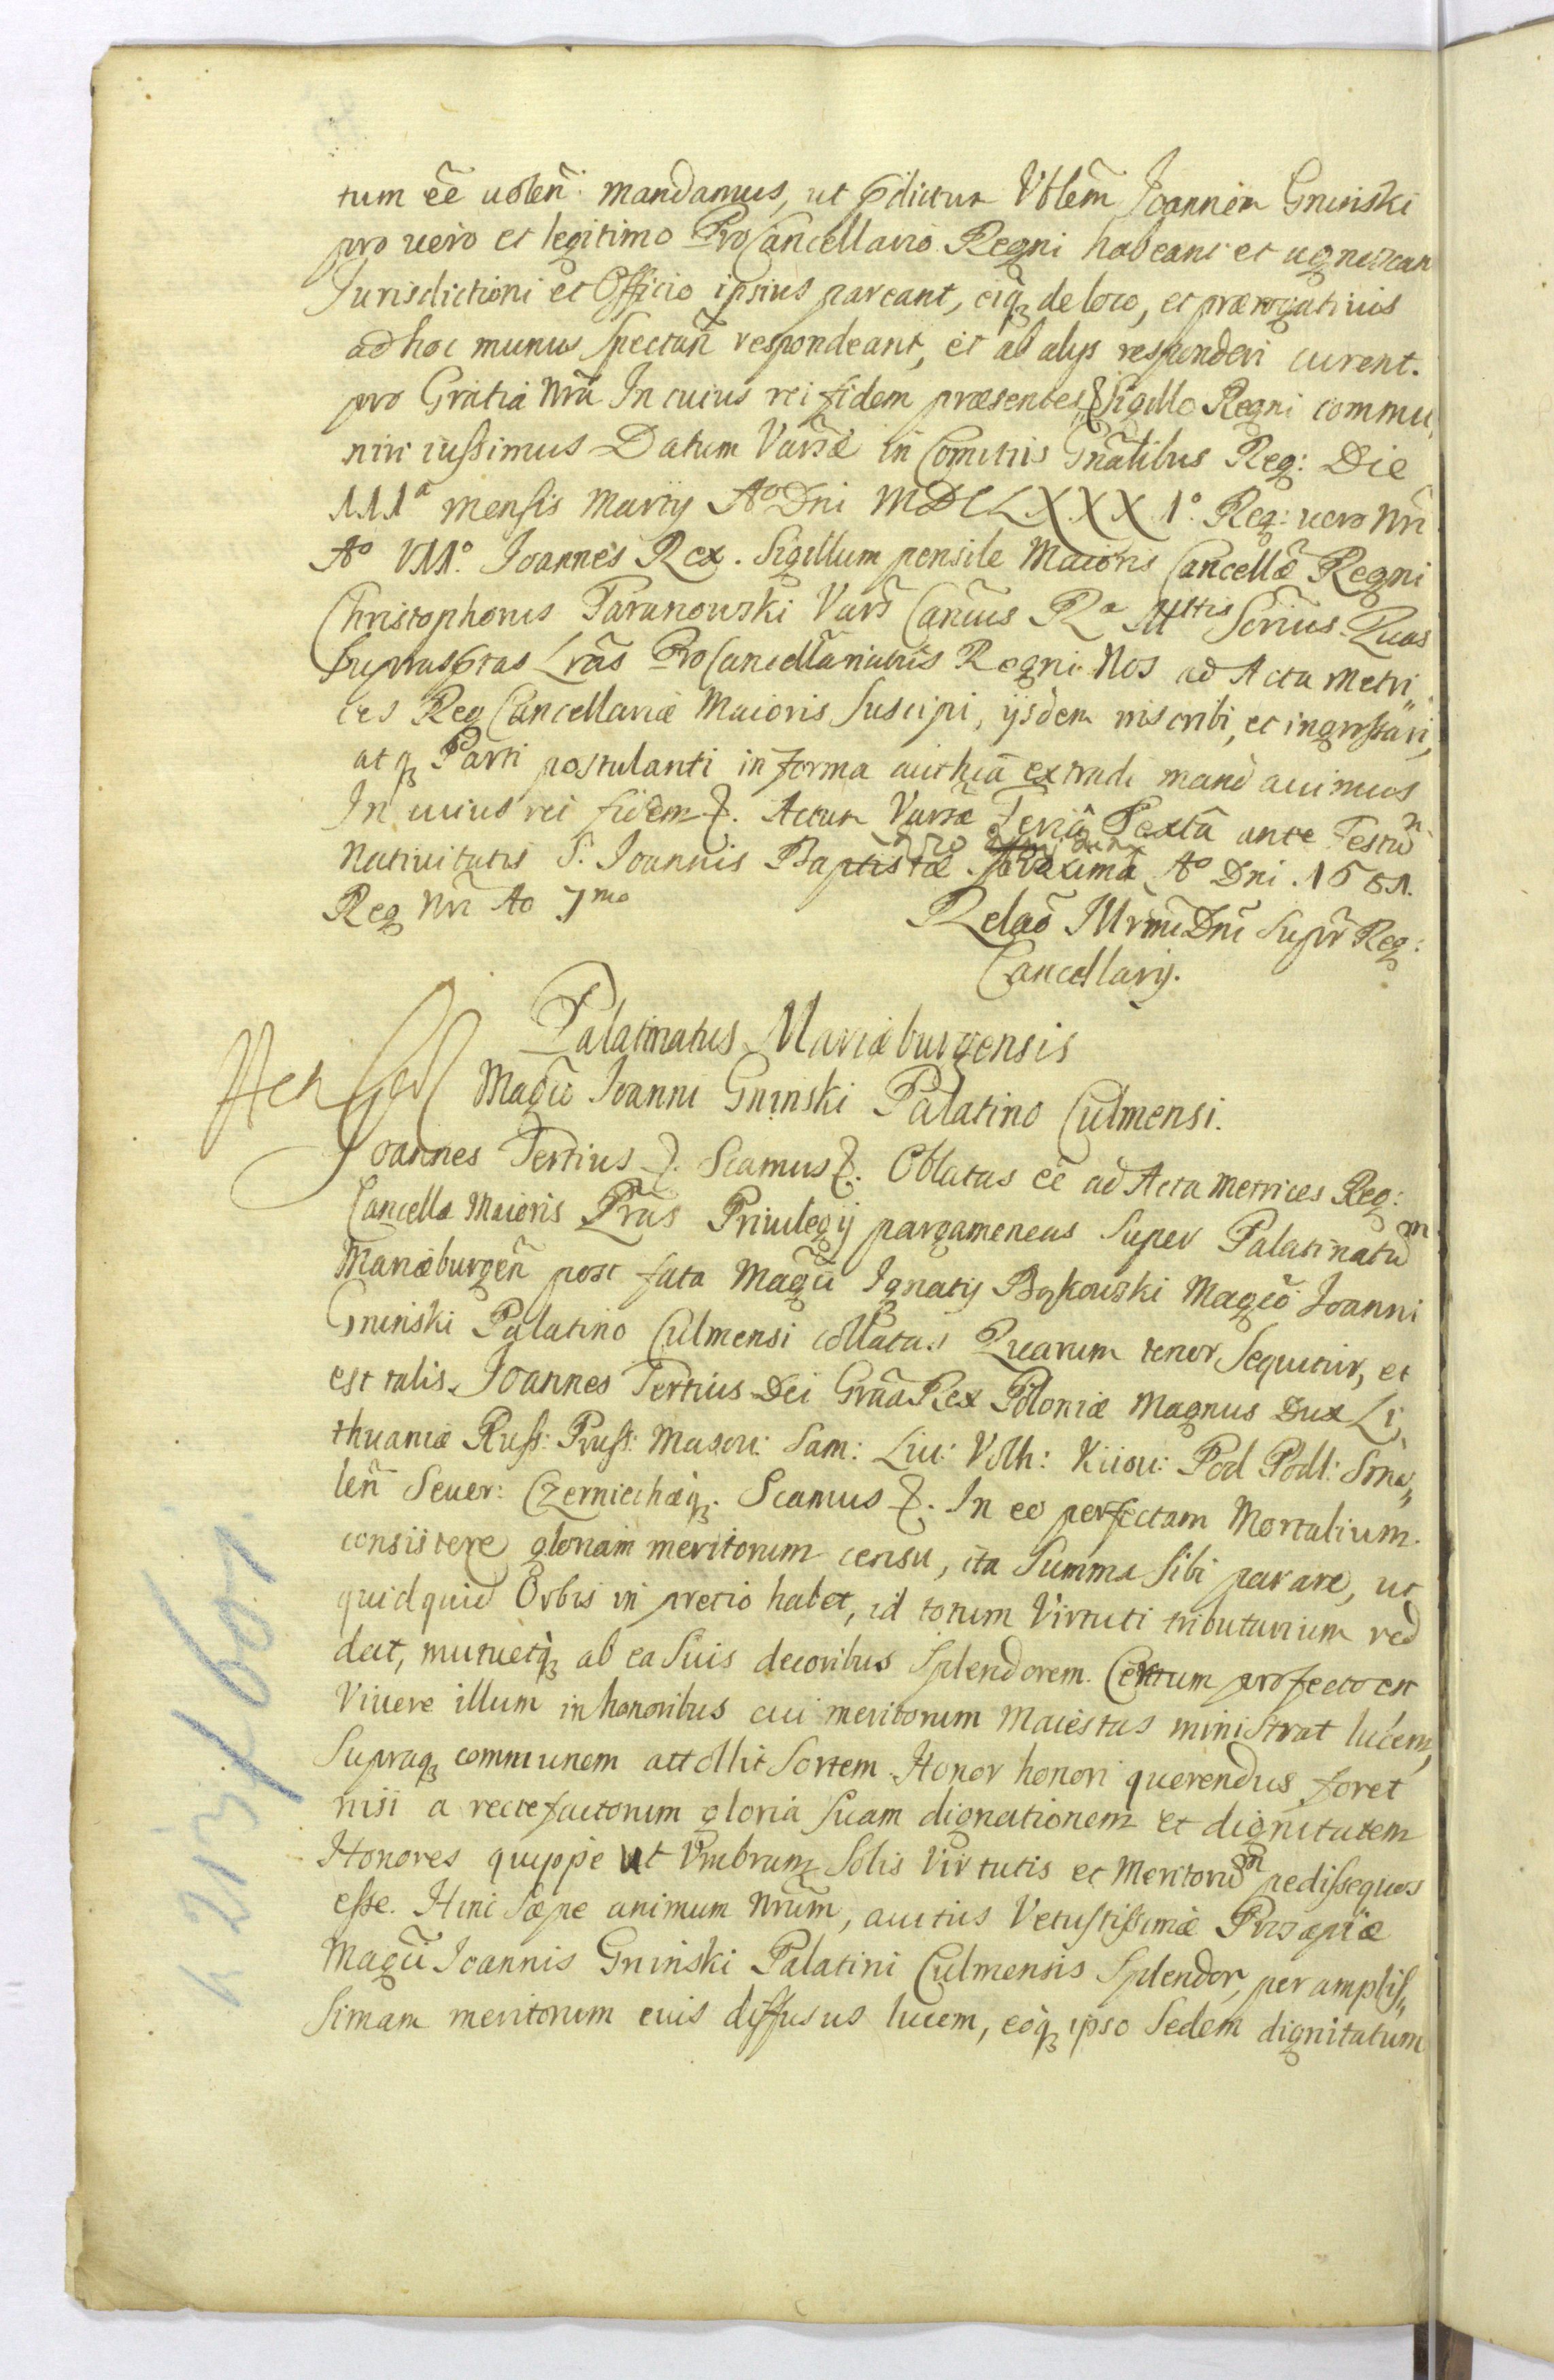 tum ēē uolen̄: mandamus, ut p̄dictum Vblem̄ Joannem Gninski
pro uero et legitimo ProCancellario Regni habeant et agnoscan
Jurisdictioni et Officio ipsius pareant, eiq₃ de loco, et prærogatiuis
ad hoc munus Spectan̄ respondeant, et ab alys responderi curent.
pro Gratia nr̄a In cuius rei fidem præsentes Sigillo Regni commu,
niri iussimus Datum Varsæ in Comitiis Gn̄alibus Reg: Die
IIIa mensis Martij Ao Dni MDCLXXXIo. Reg: uero Nr̄i
Ao VIIo. Joannes Rex. Sigillum pensile Maioris Cancellæ Regni
Christophorus Taranowski Vars Canc̄us Ra Mttis Scrīus. Quas
Suprasptas Lr̄as ProCancellariatus Regni Nos ad Acta Metri„
ces Reg Cancellariæ Maioris Suscipi, ijsdem inscribi, et ingrossari,
atq₃ Parti postulanti in forma auth̄ca extradi mandauimus
In cuius rei fidem &. Actum Varsæ Feria Sexta ante Festū
Natiuitatis S. Joannis Baptistæ proxima Ao Dni. 1681.
Reg Nr̄i Ao 7mo
Relāo Illr̄mi Dn̄i Supr̄ Reg:
Cancellarij.
Palatinatus Mariæburgensis
Magc̄o Joanni Gninski Palatino Culmensi.
Joannes Tertius &. Scamus &. Oblatas ēē ad Acta Metrices Reg:
Cancellæ Maioris Lr̄as Priuilegij pargameneas Super Palatinatū
Mariæburgen̄ post fata Magc̄i Ignatij Bąkowski Magc̄o Joanni
Gninski Palatino Culmensi collatas Quarum tenor Sequitur, et
est talis. Joannes Tertius Dei Gr̄a Rex Poloniæ Magnus Dux Li,
thuaniæ Russ: Pruss: Masou: Sam: Liu: Volh: Kiiou: Pod Podl: Smo„
len̄ Seuer: Czerniechæq₃. Scamus &. In eo perfectam Mortalium
consistere gloriam meritorum censu, ita Summa Sibi parare, ut
quidquid Orbis in pretio habet, id totum Virtuti tributarium red
dat, mutuetq₃ ab ea Suis decoribus Splendorem. Certum profecto est
Viuere illum in honoribus cui meritorum Maiestas ministrat lucem,
Supraq₃ communem attollit Sortem. Honor honori querendus foret
nisi a rectefactorum gloria Suam dignationem et dignitatem
Honores quippe ut Vmbram Solis Virtutis et Meritorū pedissequos
esse. Hinc Sæpe animum Nr̄um, auitus Vetustissimæ Prosapiæ
Magc̄i Joannis Gninski Palatini Culmensis Splendor, per amplis„
simam meritorum eius diffusus lucem, eoq₃ ipso Sedem dignitatum